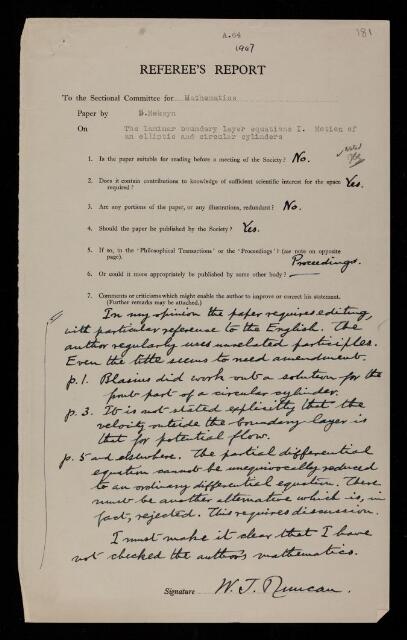 A.64
181
1947
REFEREE'S REPORT
To the Sectional Committee for Mathematics
Paper by D. Meksyn
On The laminar boundary layer equations I. Motion of
an elliptic and circular cylinders
1. Is the paper suitable for reading before a meeting of the Society? No.
2. Does it contain contributions to knowledge of sufficient scientific interest for the space
required? Yes.
3. Are any portions of the paper, or any illustrations, redundant? No.
4. Should the paper be published by the Society? Yes.
5. If so, in the 'Philosophical Transactions' or the 'Proceedings'? (see note on opposite
page). Proceedings.
6. Or could it more appropriately be published by some other body? —
7. Comments or criticisms which might enable the author to improve or correct his statement.
(Further remarks may be attached.)
In my opinion the paper requires editing,
with particular reference to the English. The
author regularly uses unrelated participles.
Even the title seems to need amendment.
p. 1. Blasius did work out a solution for the
front part of a circular cylinder.
p. 3. It is not stated explicitly that the
velocity outside the boundary layer is
that for potential flow.
p. 5 and elsewhere. The partial differential
equation cannot be unequivocally reduced
to an ordinary differential equation. There
must be another alternative which is, in
fact, rejected. This requires discussion.
I must make it clear that I have
not checked the author's mathematics.
Signature W. J. Duncan.